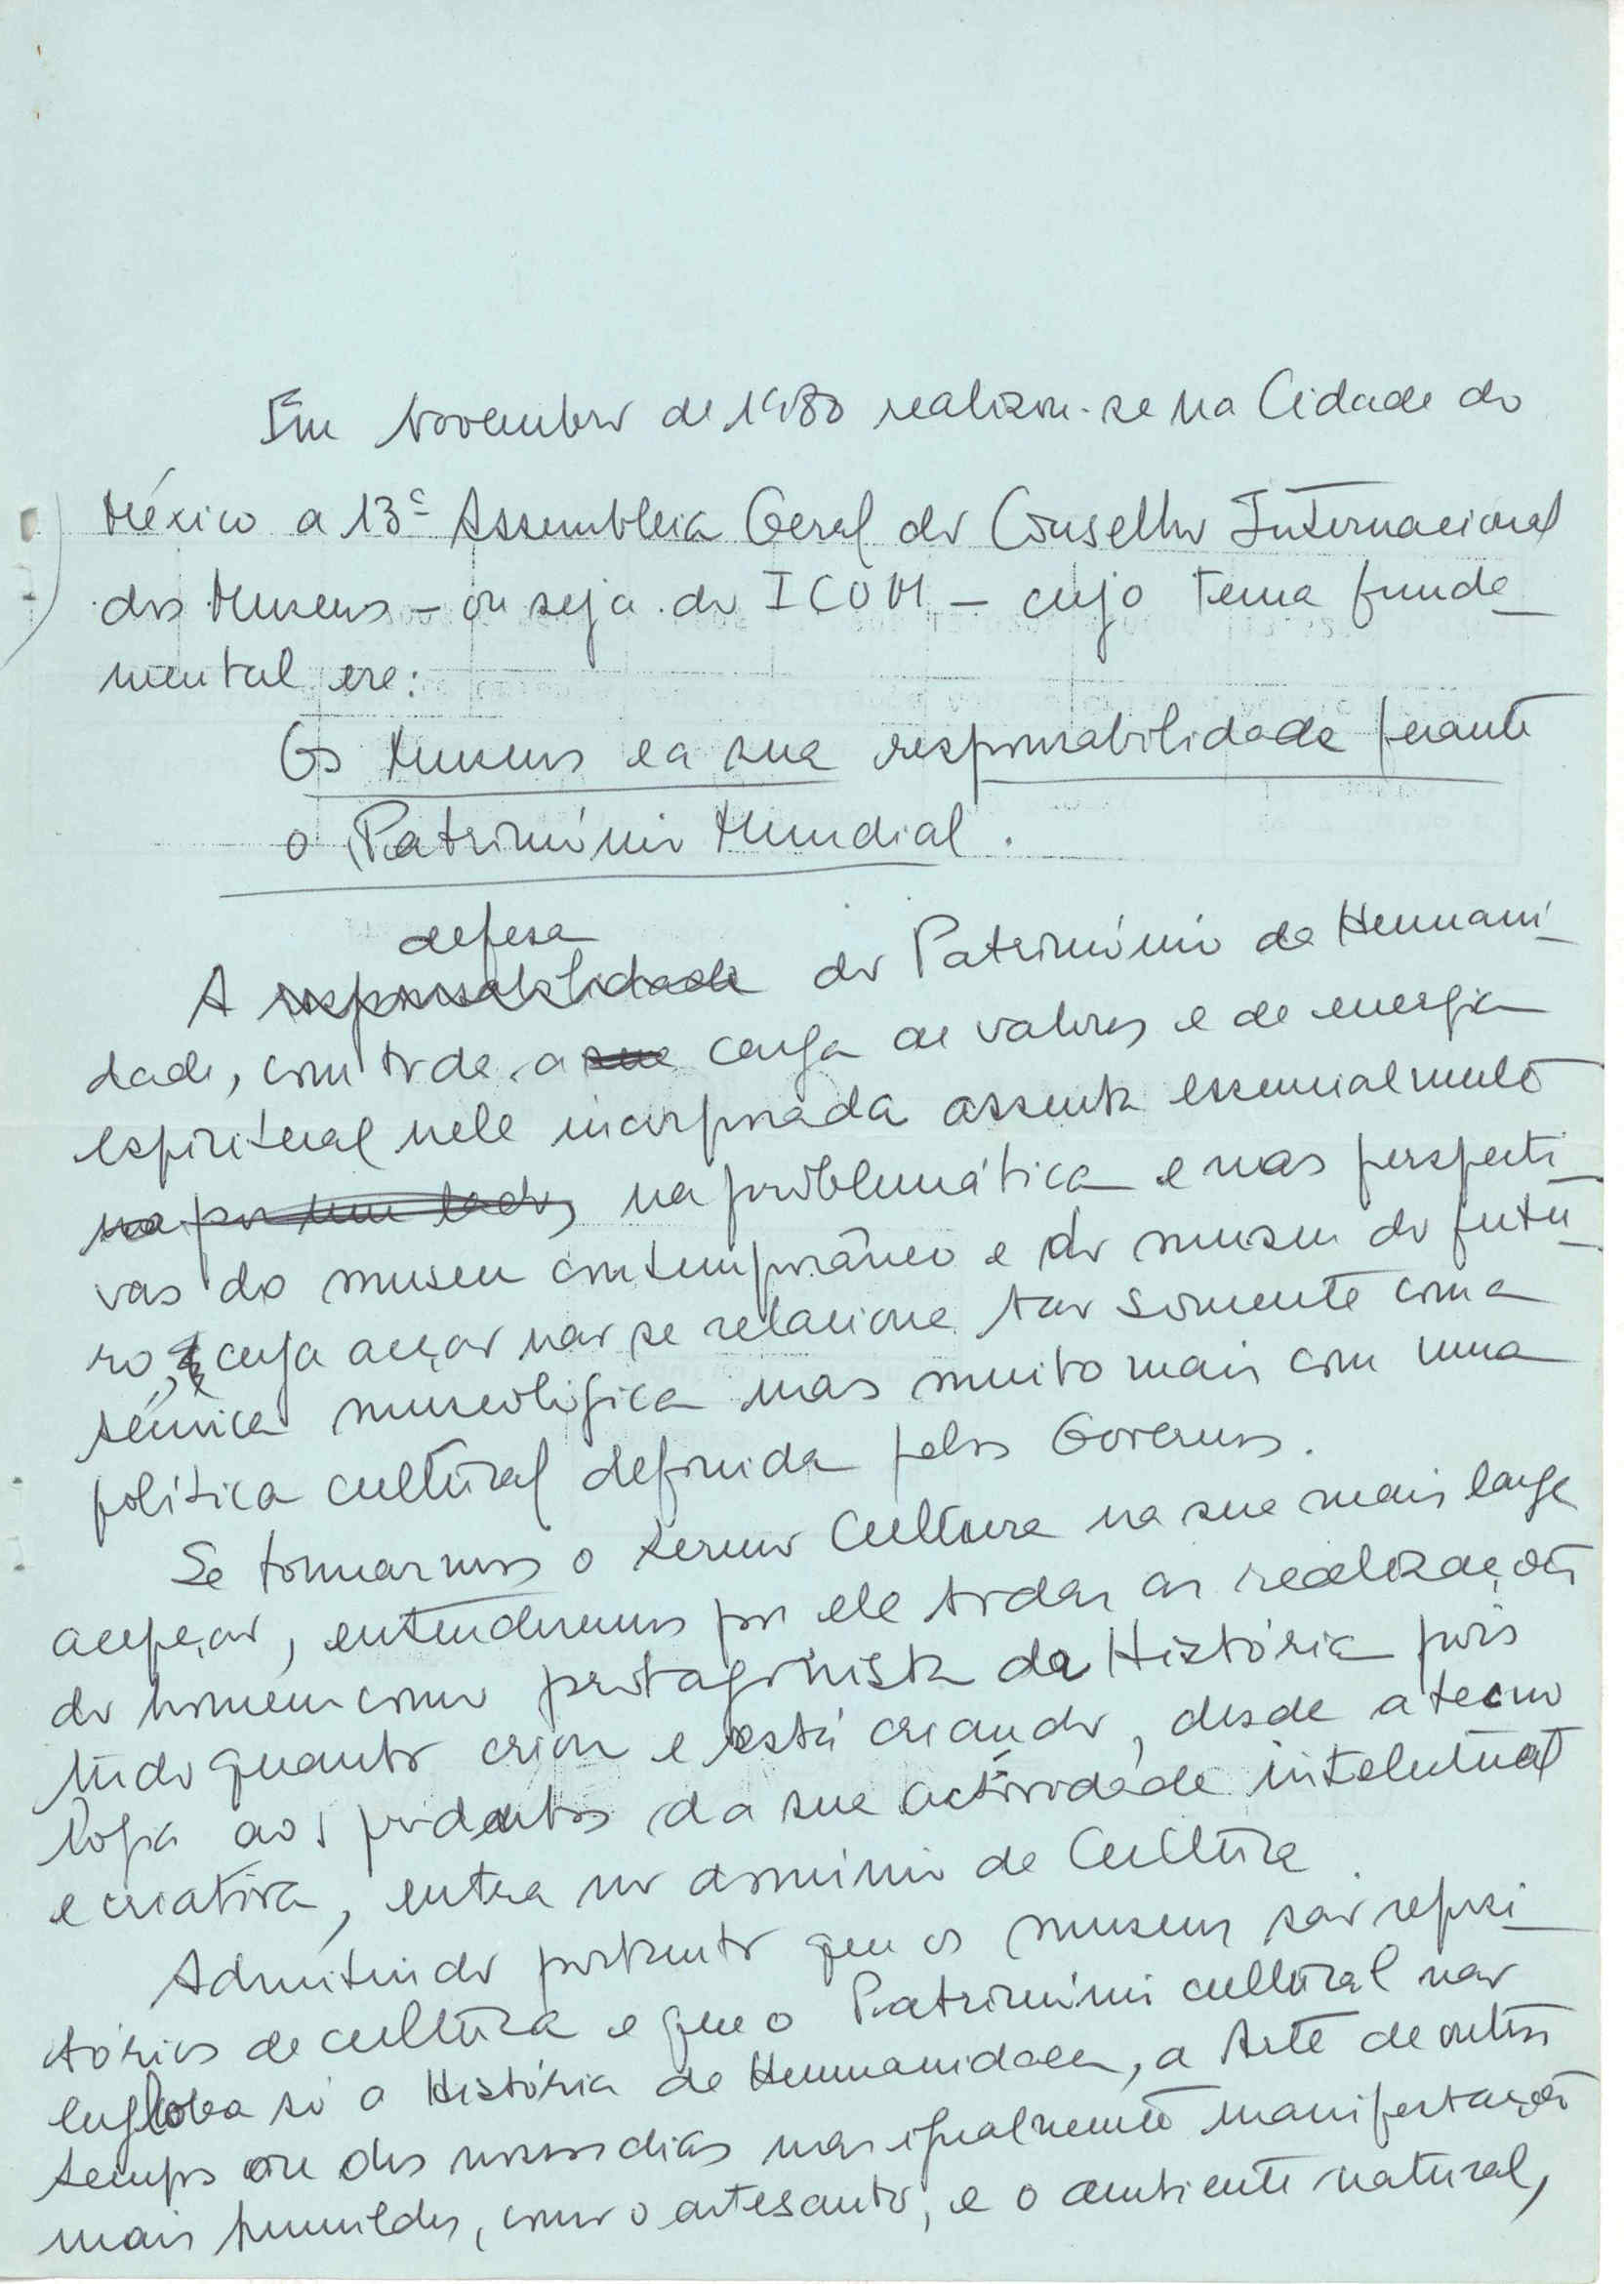 Em Novembro de 1980 realizou-se na Cidade do
México a 13ª Assembleia Geral do Conselho Internacional
dos Museus – ou seja do ICOM – cujo tema funda_
mental era:
Os Museus e a sua responsabilidade perante
o Património Mundial.
defesa
A responsabilidade do Património da Humani_
dade, com toda a sua carga de valores e de energia
espiritual nele incorporada assenta essencialmente
na por um lado, na problemática e nas perspecti_
vas do museu contemporâneo e do museu do futu_
ro, cuja acção não se relaciona tão somente com a
técnica museológica mas muito mais com uma
política cultural definida pelos Governos.
Se tomarmos o termo Cultura na sua mais larga
acepção, entendemos por ele todas as realizações
do homem como protagonista da História pois
tudo quanto criou e está criando, desde a tecno
logia aos produtos da sua actividade intelectual
e criativa, entra no domínio da Cultura.
Admitindo portanto que os museus são reposi_
tórios de cultura e que o Património cultural não
engloba só a História da Humanidade, a Arte de outros
tempos ou dos nossos dias mas igualmente manifestações
mais humildes, como o artesanato, e o ambiente natural,